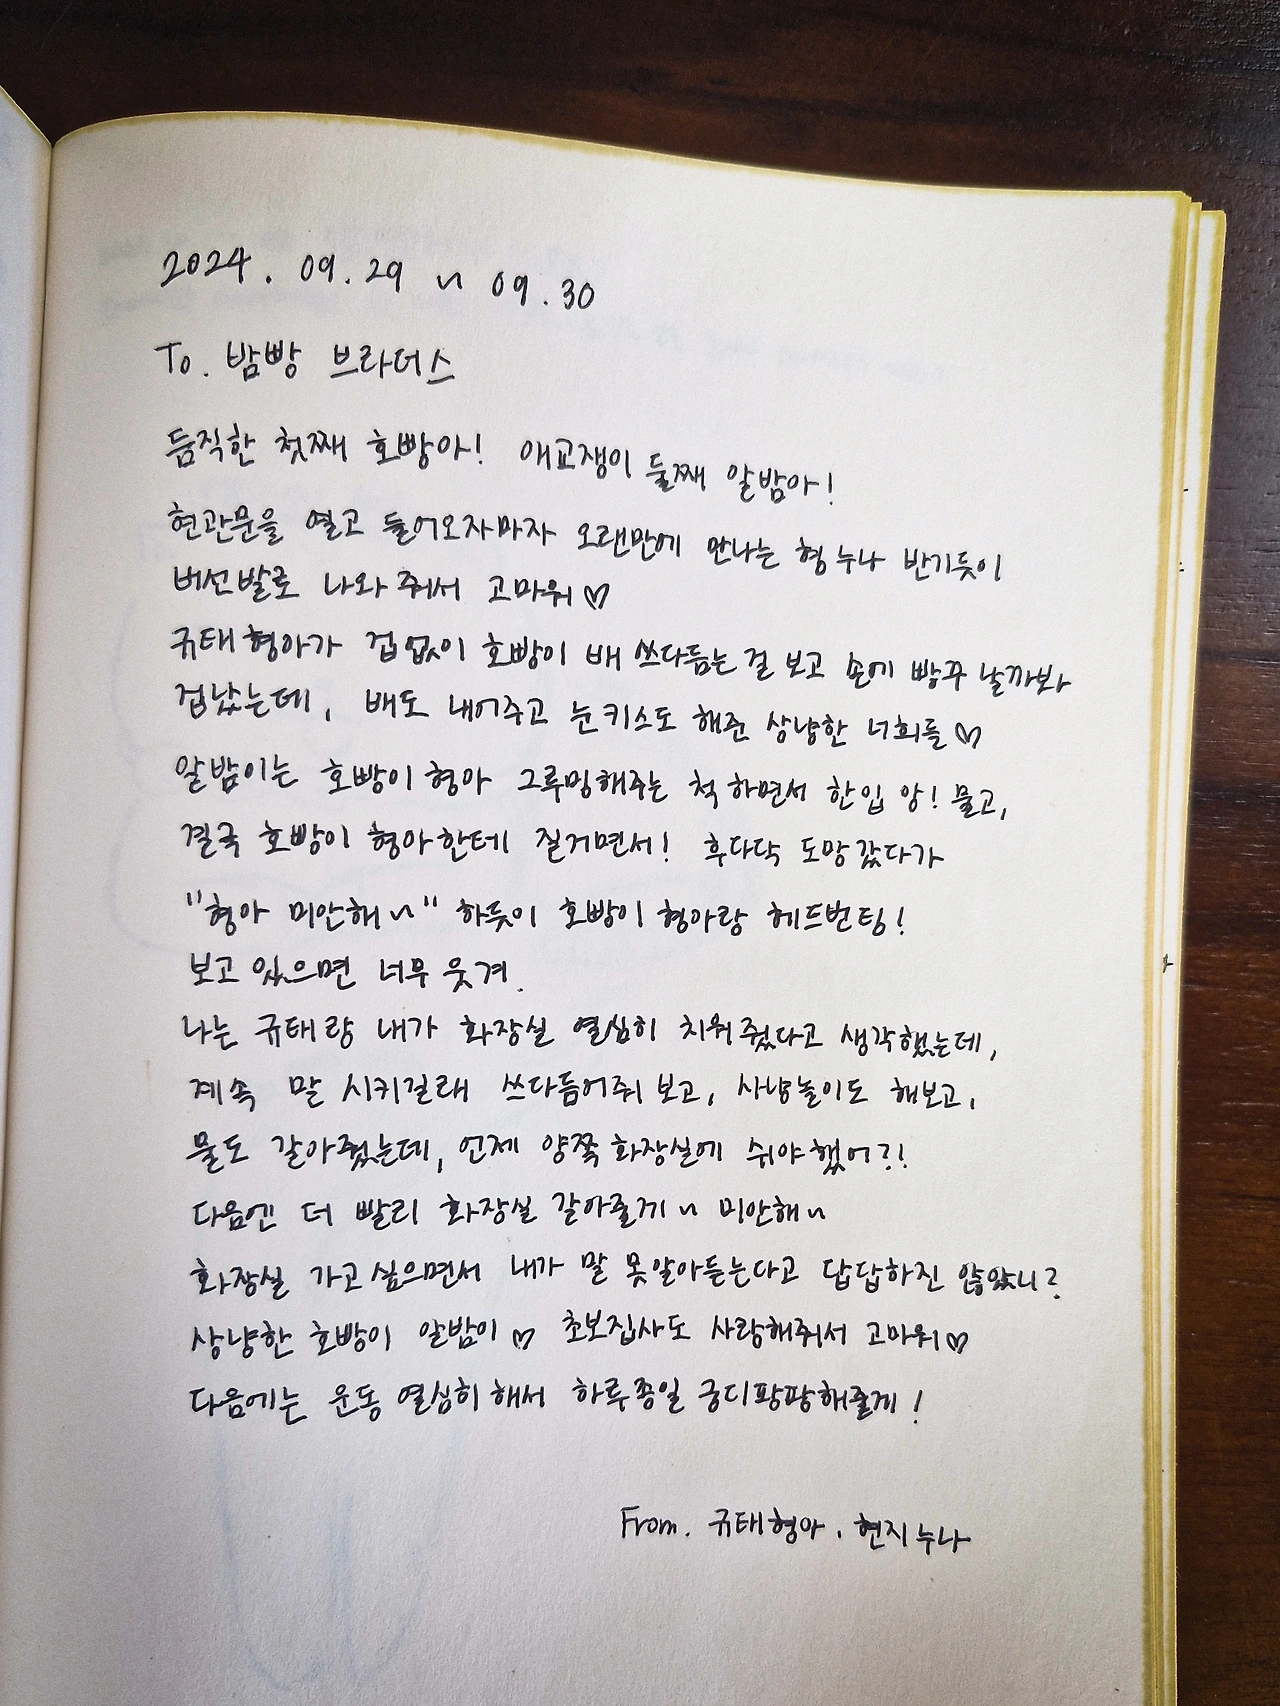 2024. 09. 29 ~ 09. 30
To. 밤빵 브라더스
듬직한 첫째 호빵아! 애교쟁이 둘째 알밤아!
현관문을 열고 들어오자마자 오랜만에 만나는 형누나 반기듯이
버선발로 나와줘서 고마워♡
규태형아가 겁없이 호빵이 배 쓰다듬는걸 보고 손에 빵꾸 날까봐
겁났는데, 배도 내어주고 눈키스도 해준 상냥한 너희들♡
알밤이는 호빵이형아 그루밍해주는 척 하면서 한입 앙! 물고,
결국 호빵이 형아한테 질거면서! 후다닥 도망갔다가
"형아 미안해~" 하듯이 호빵이형아랑 헤드번팅!
보고있으면 너무 웃겨.
나는 규태랑 내가 화장실 열심히 치워줬다고 생각했는데,
계속 말 시키길래 쓰다듬어줘보고, 사냥놀이도 해보고,
물도 갈아줬는데, 언제 양쪽화장실에 쉬야했어?!
다음엔 더 빨리 화장실 갈아줄게~ 미안해~
화장실 가고싶으면서 내가 말 못알아듣는다고 답답하진 않았니?
상냥한 호빵이 알밤이♡ 초보집사도 사랑해줘서 고마워♡
다음에는 운동 열심히해서 하루종일 궁디팡팡해줄게!
From. 규태형아, 현지누나